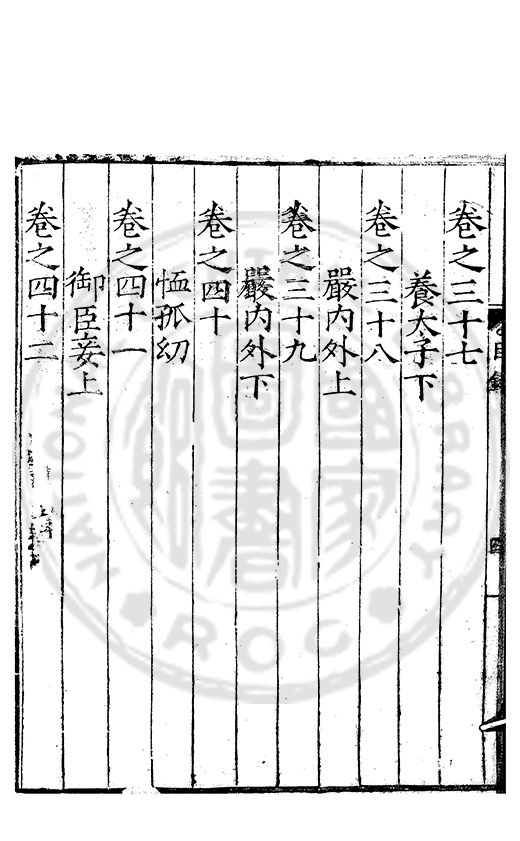 卷之三十七
養太子下
卷之三十八
嚴内外上
卷之三十九
嚴内外下
卷之四十
恤孤幼
卷之四十一
御臣妾上
卷之四十二